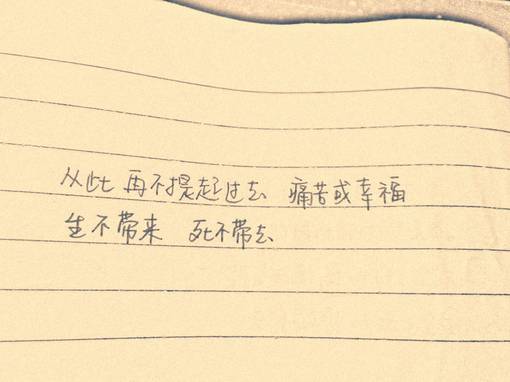 从此 再不提起过去 痛苦或幸福
生不带来 死不带去